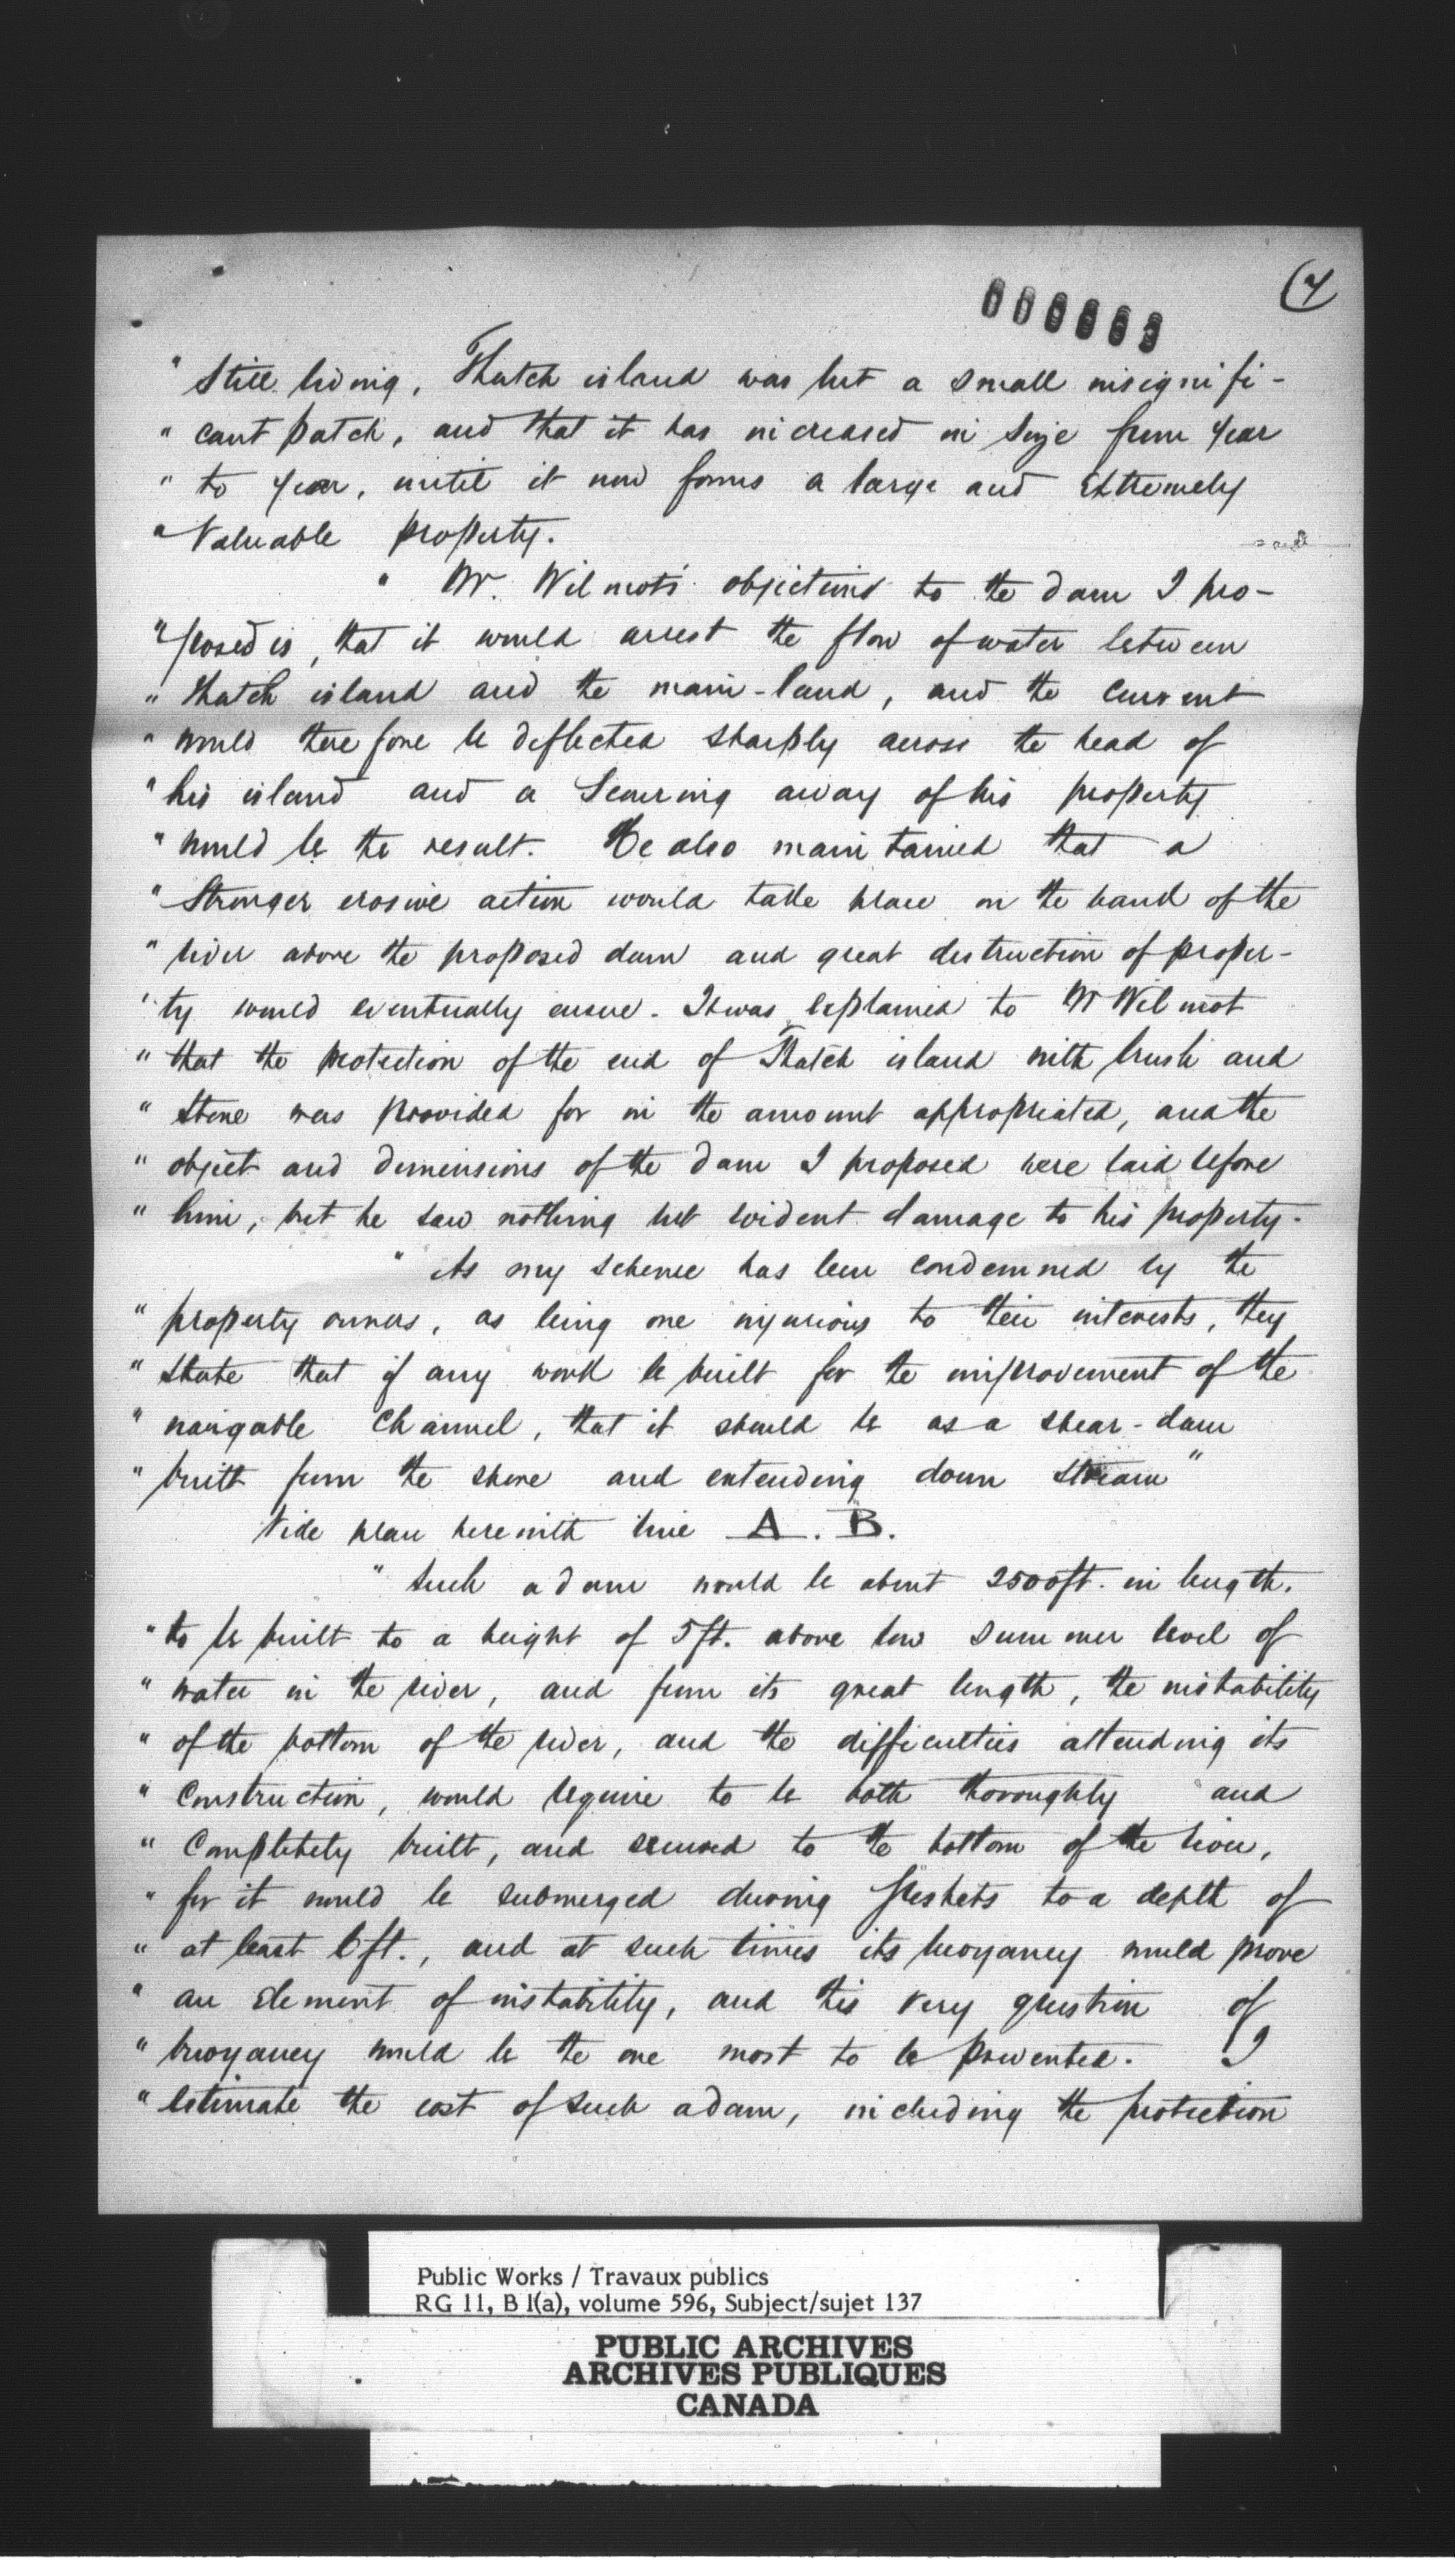 (7
" Still living, Thatch island was but a small insignifi-
" cant patch, and that it has increased in size from year
" to year, until it now forms a large and extremely
" Valuable property.
" Mr. Wilmot's objections to the dam I pro-
" posed is, that it would arrest the flow of water between
" thatch island and the main-land, and the current
" would therefore be deflected sharply across the head of
" his island and a Scouring away of his property
" would be the result. He also maintained that a
" Stronger erosive action would take place on the bank of the
" river above the proposed dam and great destruction of proper-
" ty would eventually ensue. It was explained to Mr Wilmot
" that the protection of the end of Thatch island with brush and
" stone was provided for in the amount appropriated, and the
" object and dimensions of the dam I proposed were laid before
" him, but he saw nothing but evident damage to his property.
" As my scheme has been condemned by the
" property owners, as being one injurious to their interests, they
" state that if any work be built for the improvement of the
" navigable Channel, that it should be as a shear-dam
" built from the shore and extending down stream"
Vide plan herewith line A. B.
" Such a dam would be about 2500ft. in length.
" to be built to a height of 5ft. above low summer level of
" water in the river, and from its great length, the instability
" of the bottom of the river, and the difficulties attending its
" Construction, would require to be both thoroughly and
" Completely built, and secured to the bottom of the river,
" for it would be submerged during freshets to a depth of
" at least 6ft., and at such times its buoyancy would prove
" an Element of instability, and this very question of
" buoyancy would be the one most to be prevented. I
" Estimate the cost of such a dam, including the protection
Public Works / Travaux publics
RG 11, B 1(a), volume 596, Subject/sujet 137
PUBLIC ARCHIVES
ARCHIVES PUBLIQUES
CANADA